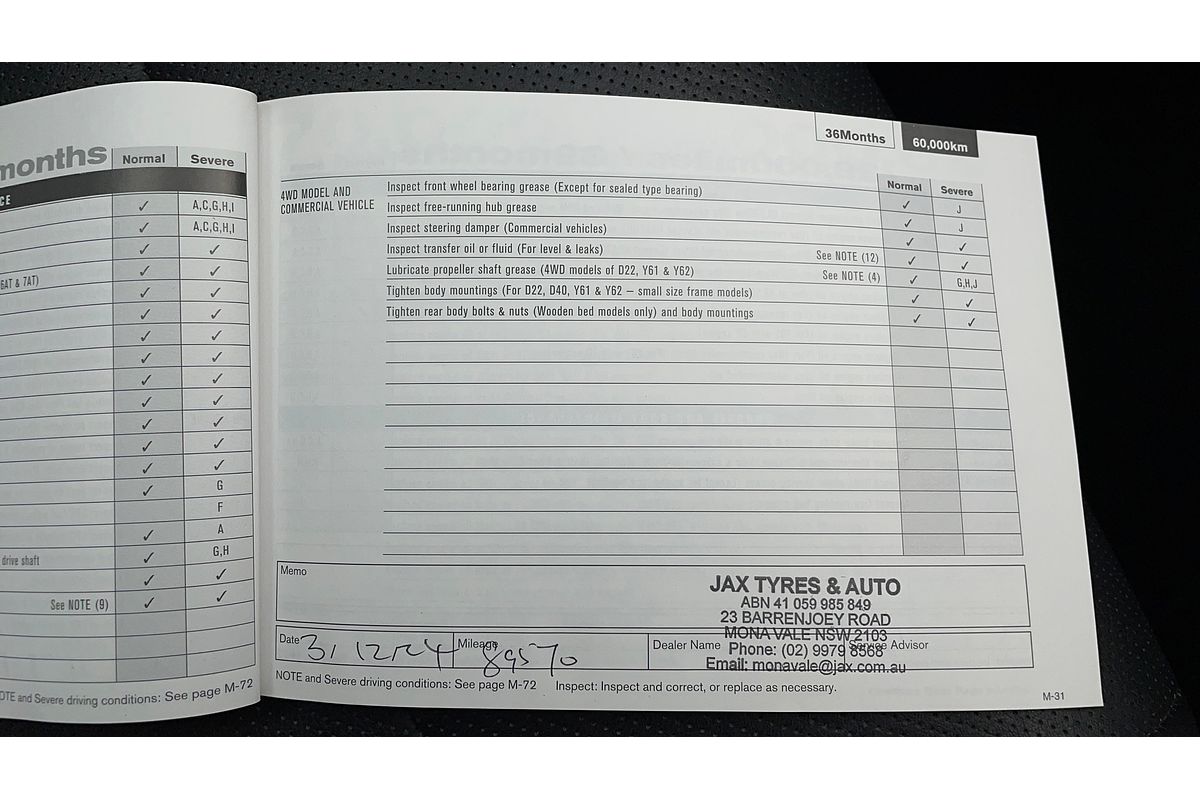 months Normal Severe
CE
✓ A,C,G,H,I
✓ A,C,G,H,I
✓ ✓
6AT & 7AT) ✓ ✓
✓ ✓
✓ ✓
✓ ✓
✓ ✓
✓ ✓
✓ ✓
✓ ✓
✓ ✓
✓ ✓
✓ G
F
✓ A
drive shaft ✓ G,H
✓ ✓
See NOTE (9) ✓ ✓
OTE and Severe driving conditions: See page M-72
36Months 60,000km
Normal Severe
4WD MODEL AND
COMMERCIAL VEHICLE
Inspect front wheel bearing grease (Except for sealed type bearing) ✓ J
Inspect free-running hub grease ✓ J
Inspect steering damper (Commercial vehicles) ✓ ✓
Inspect transfer oil or fluid (For level & leaks) See NOTE (12) ✓ ✓
Lubricate propeller shaft grease (4WD models of D22, Y61 & Y62) See NOTE (4) ✓ G,H,J
Tighten body mountings (For D22, D40, Y61 & Y62 – small size frame models) ✓ ✓
Tighten rear body bolts & nuts (Wooden bed models only) and body mountings ✓ ✓
Memo
JAX TYRES & AUTO
ABN 41 059 985 849
23 BARRENJOEY ROAD
MONA VALE NSW 2103
Phone: (02) 9979 8568
Email: monavale@jax.com.au
Date 31 12/24 Mileage 89570 Dealer Name Service Advisor
NOTE and Severe driving conditions: See page M-72 Inspect: Inspect and correct, or replace as necessary.
M-31